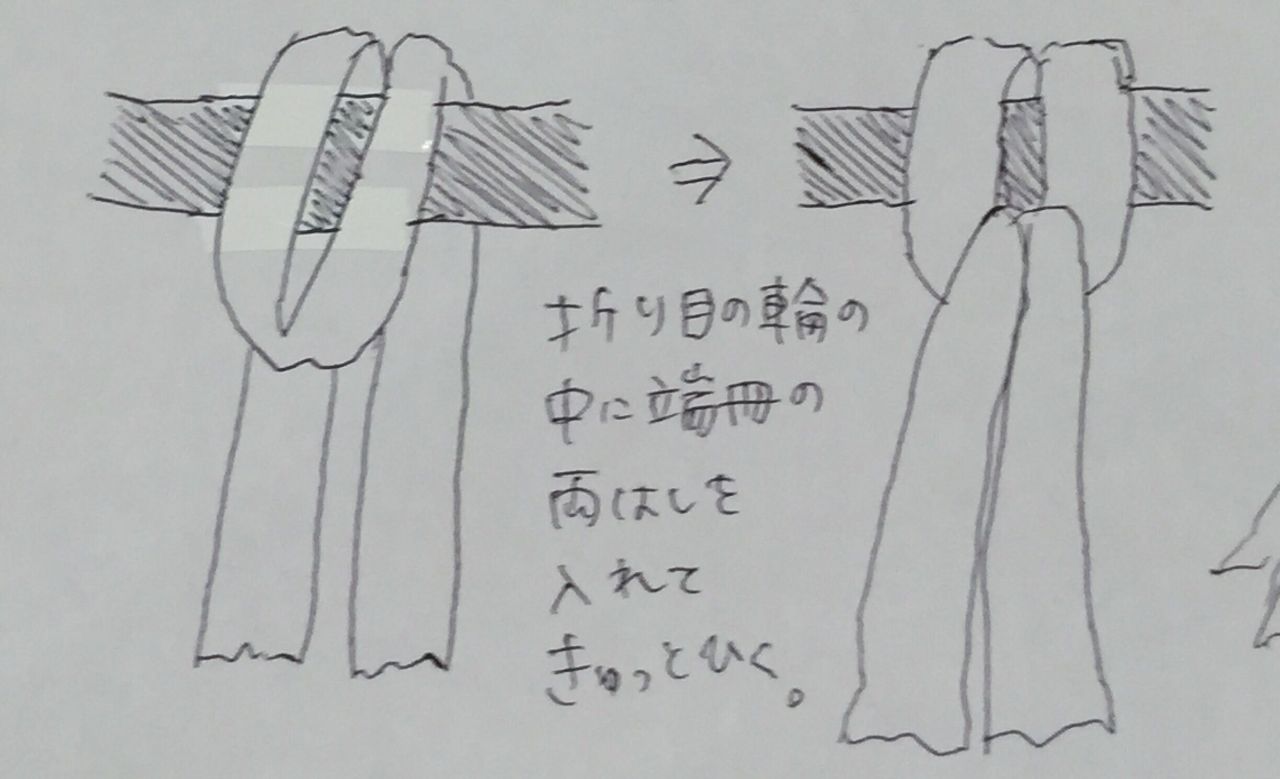 折り目の輪の
中に端冊の
両はしを
入れて
きゅっとひく。